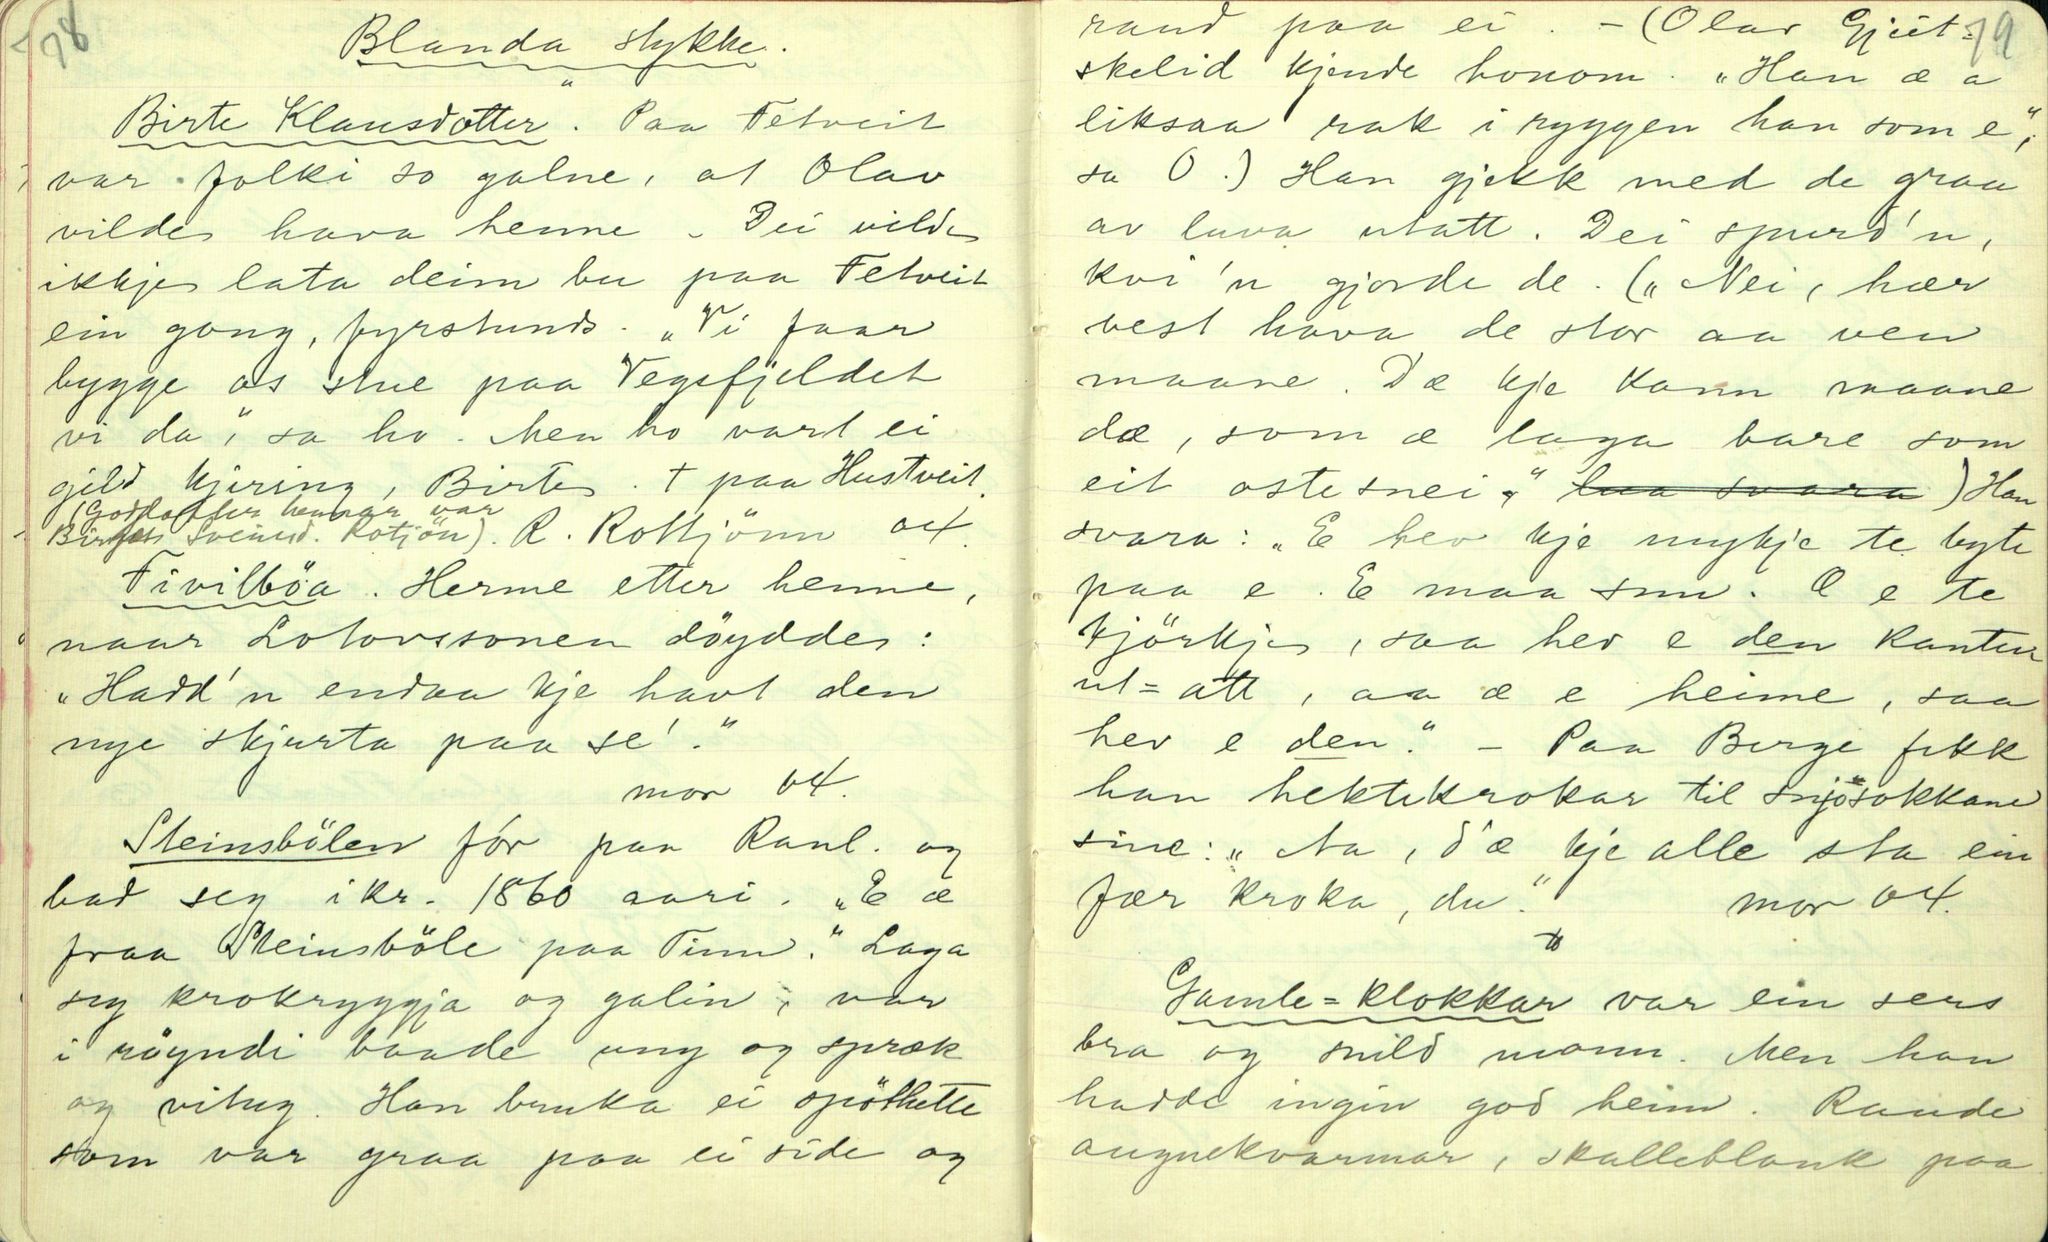 78
Blanda stykke.
Birte Klausdotter. Paa Fetveit
var folki so galne, at Olav
vilde hava henne. Dei vilde
ikkje lata deim bu paa Fetveit
ein gong, fyrstunds. "Vi faar
bygge os stue paa Vegsfjeldet
vi da", sa ho. Men ho vart ei
gild kjering, Birte. † paa Hustveit.
(Godfatter hennar var
Sveinsd. Rotjön). R. Rottjönn 04.
Fivilböa. Herme etter henne,
naar Lotovssonen döydde:
"Hadd'n endaa kje havt den
nye skjurta paa se'."
mor 04.
Steinsbölen fór paa Raul. og
bad seg ikr. 1860 aari. "E æ
fraa Steinsböle paa Tinn." Laga
seg krokryggja og galin, var
i röyndi baade ung og spræk
og vitug. Han bruka ei spöthette
som var graa paa ei side og
79
rand paa ei. - (Olav Gjuit=
skelid kjende honom. "Han æ a
liksaa rak i ryggen han som e",
sa O.) Han gjekk med de graa
av luva utatt. Dei spurd'n,
kvi'n gjorde de. ("Nei, hær
vest hava de stor aa ven
maane. D'æ kje kann maane
dæ, som æ laga bare som
eit ostesnei." laa svara) Han
svara: "E hev kje mykje te byte
paa e. E maa snu. Æ e te
kjörkje, saa hev e den kanten
ut=att, aa æ e heime, saa
hev e den." - Paa Berge fekk
han hektekrokar til snjosokkane
sine: "Aa, d'æ kje alle sta ein
fær kroka, du." mor 04.
Gamle=klokkar var ein sers
bra og snild mann. Men han
hadde ingin god heim. Raude
augnekvarmar, skalleblank paa